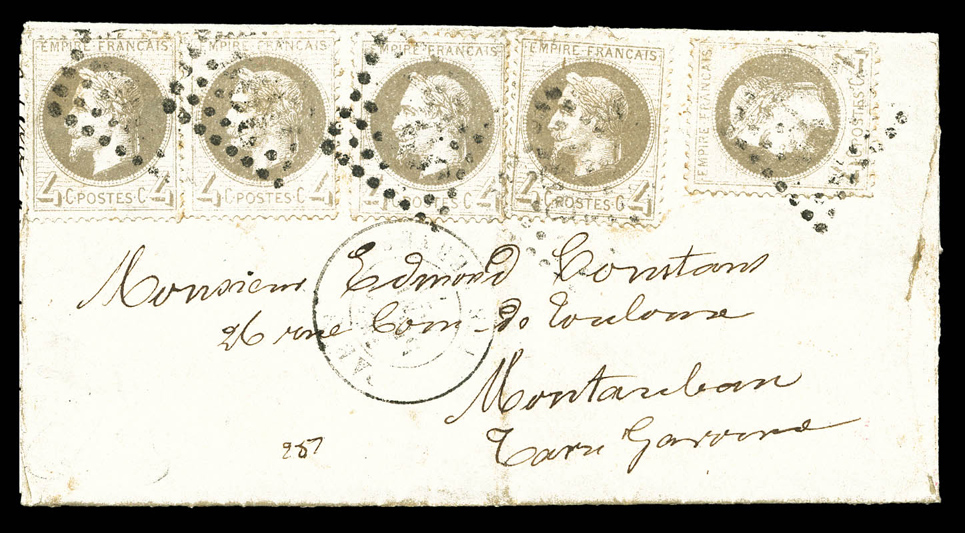 EMPIRE·FRANÇAIS EMPIRE·FRANÇAIS EMPIRE·FRANÇAIS EMPIRE·FRANÇAIS EMPIRE·FRANÇAIS
4 C·POSTES·C 4 4 C·POSTES·C 4 4 C·POSTES·C 4 4 C·POSTES·C 4 4 C·POSTES·C 4
Monsieur Edmond Constans
26 rue Com de Toulouse
Montauban
Tarn Garonne
257